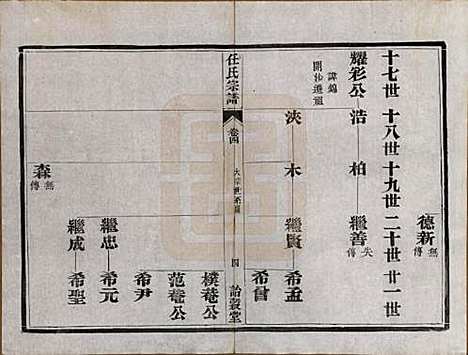 十七世 十八世 十九世 二十世 廿一世
德新 無傳
耀彩公 浩 柏 繼善 失傳
諱錦
開沙遷祖
浹 木 繼賢 希孟
希曾
任氏宗譜 卷四 大宗世系圖 四 詒穀堂
樸菴公
范菴公
希尹
繼忠 希元
繼成 希聖
森 無傳